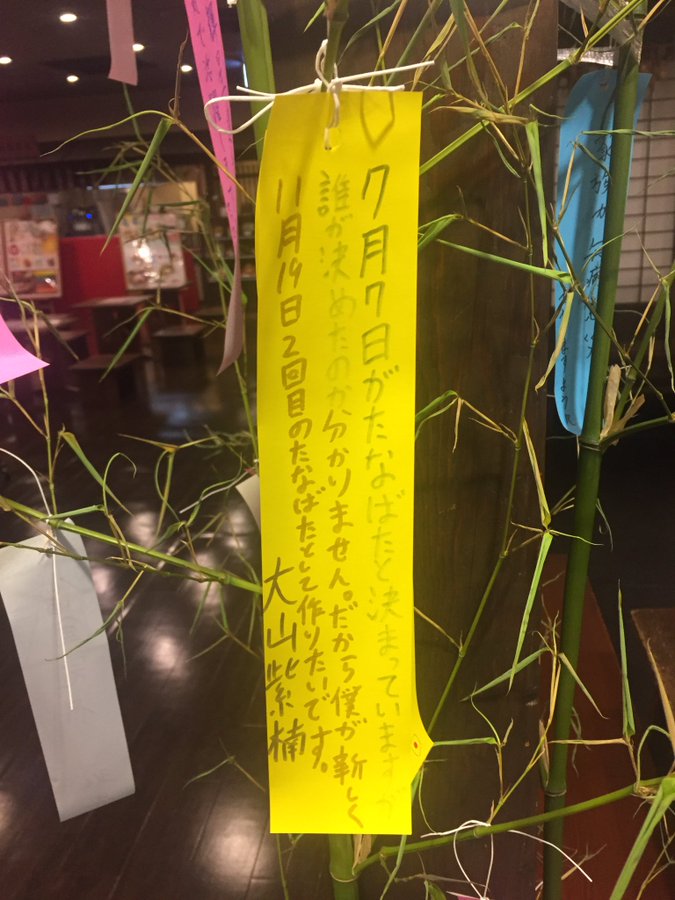 7月7日がたなばたと決まっていますが
誰が決めたのか分かりません。だから僕が新しく
11月19日2回目のたなばたとして作りたいです。
大山紫楠